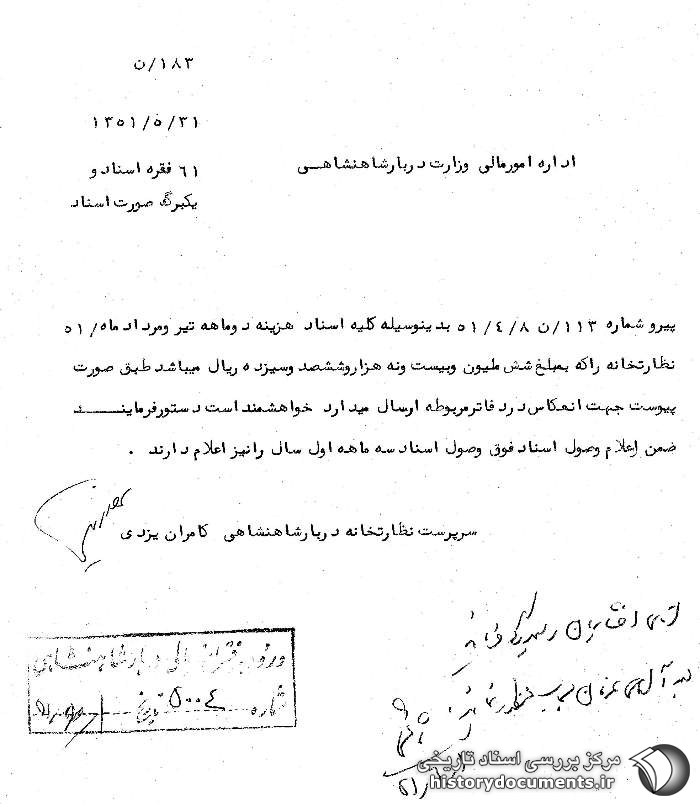 ۱۸۳/ن
۱۳۵۱/۵/۳۱
۶۱ فقره اسناد و
یکبرگ صورت اسناد
اداره امورمالی وزارت دربارشاهنشاهی
پیرو شماره ۱۱۳/ن ۵۱/۴/۸ بدینوسیله کلیه اسناد هزینه دوماهه تیر ومرداد ماه/۵۱
نظارتخانه راکه بمبلغ شش ملیون وبیست ونه هزاروششصد وسیزده ریال میباشد طبق صورت
پیوست جهت انعکاس دردفاترمربوطه ارسال میدارد خواهشمند است دستورفرمایند
ضمن اعلام وصول اسناد فوق وصول اسناد سه ماهه اول سال رانیز اعلام دارند .
سرپرست نظارتخانه دربارشاهنشاهی کامران یزدی
آقای افشاریان رسیدگی فرمائید
ورود بدفتر امور مالی دربار شاهنشاهی
شماره ۵۰۰۴ تاریخ
مرکز بررسی اسناد تاریخی
historydocuments.ir